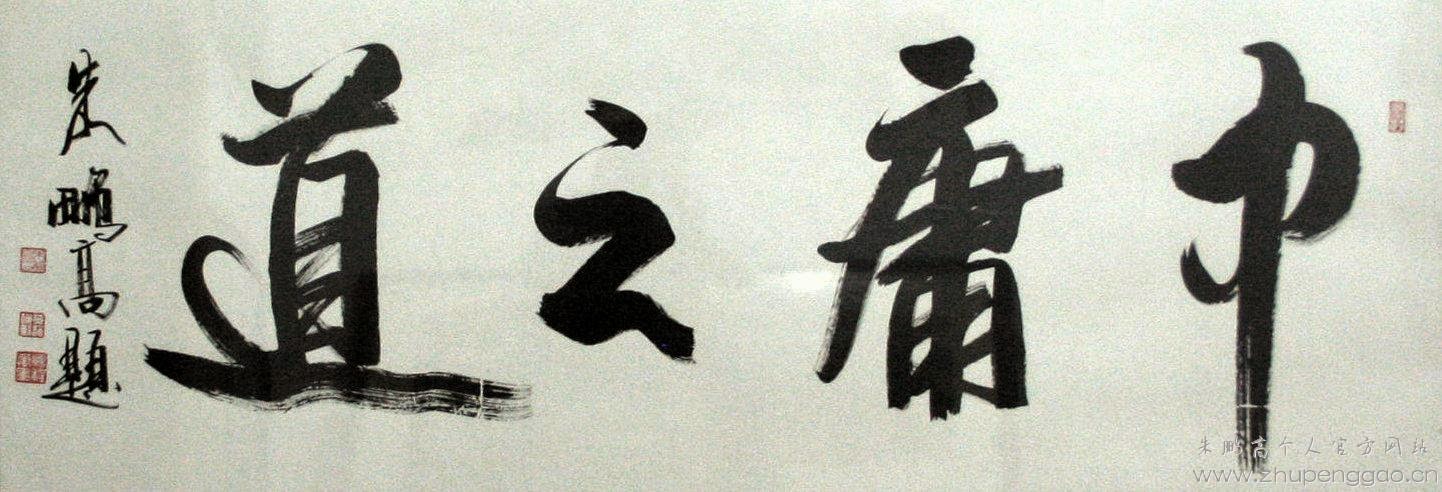 中庸之道
朱鵬高題
朱鹏高个人官方网站
www.zhupenggao.cn